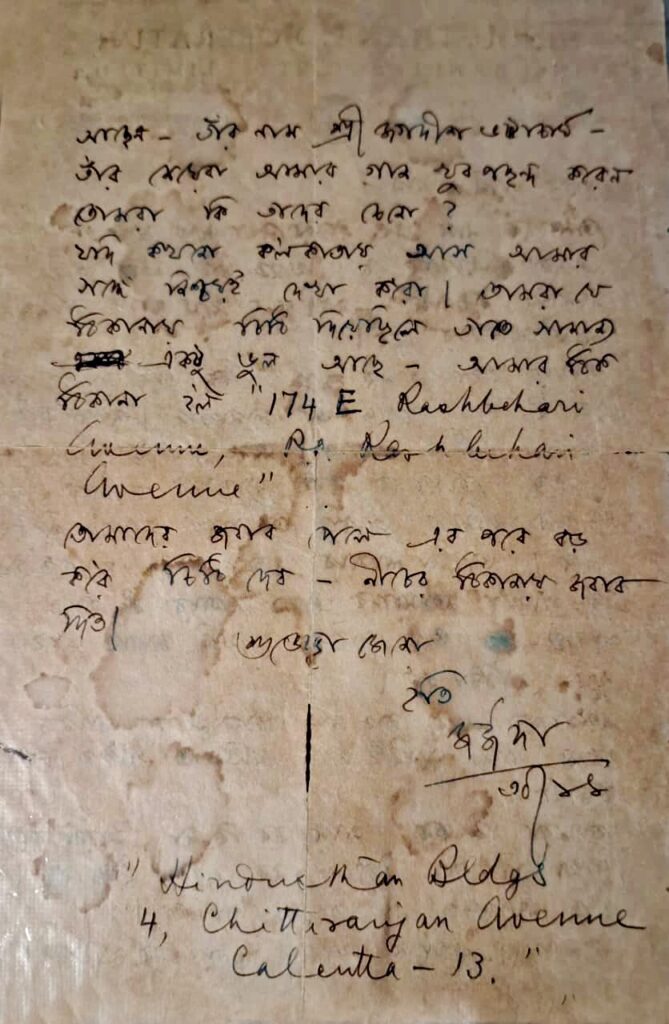 আছেন - তাঁর নাম শ্রী জগদীশ ভট্টাচার্য -
তাঁর মেয়েরা আমার গান খুব পছন্দ করেন
তোমরা কি তাদের চেনো ?
যদি কখনো কলকাতায় আস আমার
সঙ্গে নিশ্চয়ই দেখা করো। তোমরা যে
ঠিকানায় চিঠি দিয়েছিলে তাতে সামান্য
একটু ভুল আছে - আমার ঠিক
ঠিকানা হল "174 E Rashbehari
Avenue, P.o. Rashbehari
Avenue"
তোমাদের জবাব পেলে এর পরে বড়
করে চিঠি দেব - নীচের ঠিকানায় জবাব
দিও।
শুভেচ্ছা জেনো
ইতি
জর্জদা
"Hindusthan Bldgs
4, Chittaranjan Avenue
Calcutta - 13."